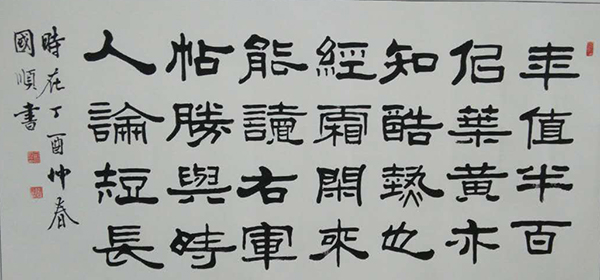 年值半百
佀葉黄亦
知酷熱也
經霜閑來
能讀右軍
帖勝與時
人論短長
時在丁酉仲春
國順書